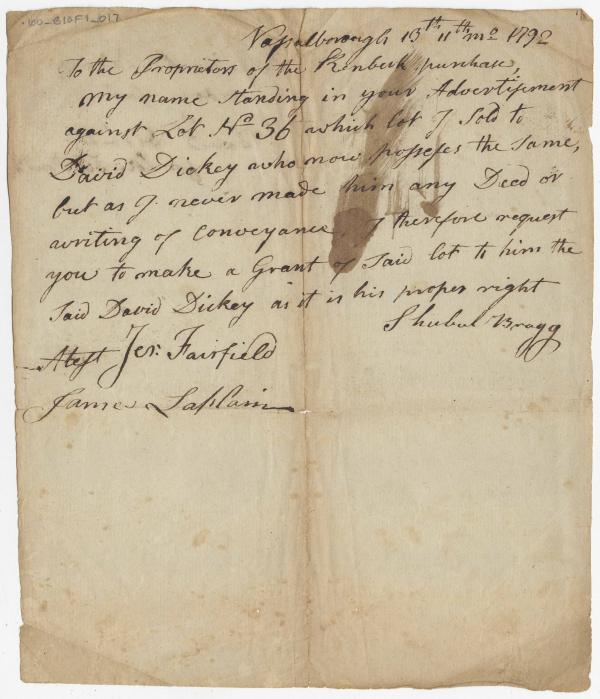 100-B10F1-017
Vassalborough 13th 11th mo 1792
To the Proprietors of the Kenbeck purchase,
My name standing in your Advertisement
against Lot No 36 which lot I Sold to
David Dickey who now possesses the Same,
but as I never made him any Deed or
writing of Conveyance, I therefore request
you to make a Grant of Said lot to him the
Said David Dickey as it is his proper right
Shubal Bragg
Attest Jer. Fairfield
James